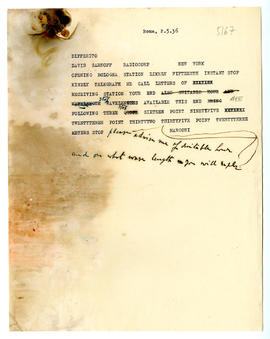 Rome, 2.5.36
5167
DIFFERITO
DAVID SARNOFF RADIOCORP NEW YORK
OPENING BOLOGNA STATION LIKELY FIFTEENTH INSTANT STOP
KINDLY TELEGRAPH ME CALL LETTERS OF
RECEIVING STATION YOUR END ALSO SUITABLE YOUR AND
WAVELENGTHS AVAILABLE THIS END
FOLLOWING THREE SIXTEEN POINT NINETYFIVE METERS
TWENTYTHREE POINT THIRTYTWO THIRTYFIVE POINT TWENTYTHREE
METERS STOP please advise me if suitable hour
MARCONI
and on what wave length you will reply